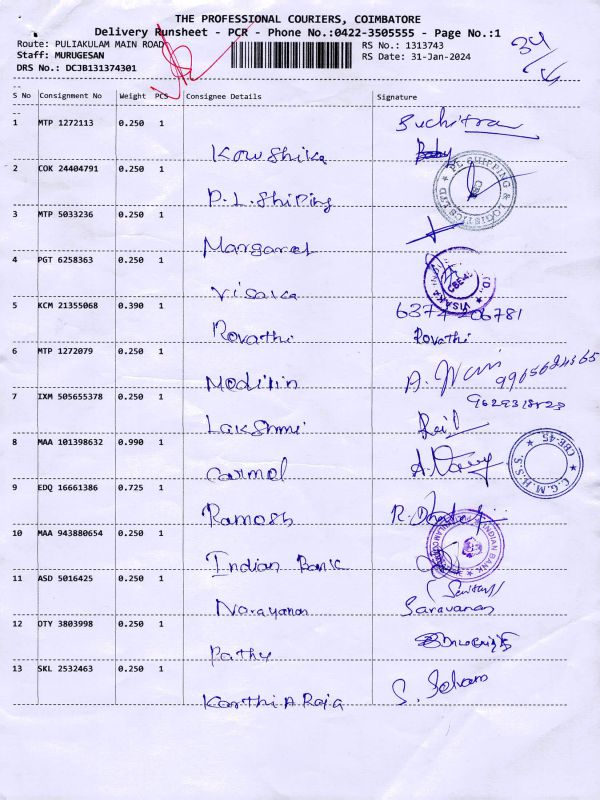 THE PROFESSIONAL COURIERS, COIMBATORE
Delivery Runsheet - PCR - Phone No.:0422-3505555 - Page No.:1
Route: PULIAKULAM MAIN ROAD RS No.: 1313743
Staff: MURUGESAN RS Date: 31-Jan-2024
DRS No.: DCJB131374301
34
S No Consignment No Weight PCS Consignee Details Signature
1 MTP 1272113 0.250 1 Suchitra
Kowshika
2 COK 24404791 0.250 1 PL SHIPPING & LOGISTICS LTD
P.L.Shiping
3 MTP 5033236 0.250 1
Margaret
4 PGT 6258363 0.250 1 VISAKA CBE-45
Visaka
5 KCM 21355068 0.390 1 6374206781
Rovathi Rovathi
6 MTP 1272079 0.250 1 A.
Medilin
7 IXM 505655378 0.250 1
Lakshmi
8 MAA 101398632 0.990 1 C.G.M.H.S.S. CBE-45
Carmel
9 EDQ 16661386 0.725 1
Ramosh R.
10 MAA 943880654 0.250 1 INDIAN BANK
Indian Bank
11 ASD 5016425 0.250 1
Narayanan Saravanan
12 OTY 3803998 0.250 1
Pathy
13 SKL 2532463 0.250 1 S.
Karthi A Raja